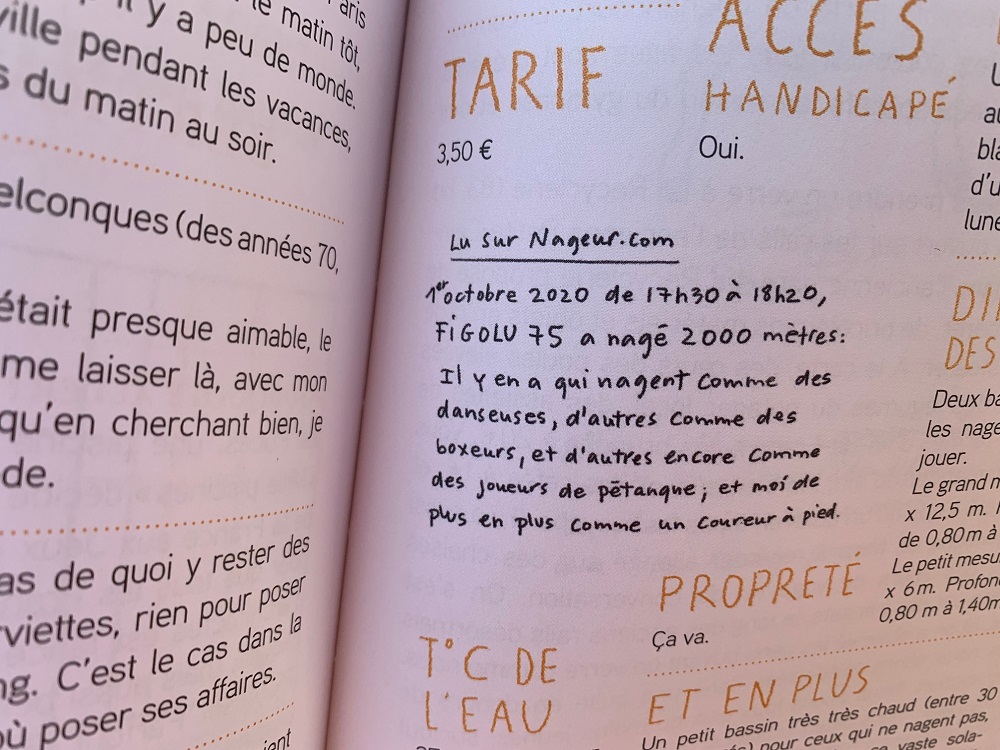 le matin tôt,
il y a peu de monde.
ville pendant les vacances,
du matin au soir.
elconques (des années 70,
était presque aimable, le
me laisser là, avec mon
qu'en cherchant bien, je
de.
as de quoi y rester des
rviettes, rien pour poser
ng. C'est le cas dans la
où poser ses affaires.
TARIF
3,50 €
ACCÈS
HANDICAPÉ
Oui.
Lu sur Nageur.com
1er octobre 2020 de 17h30 à 18h20,
FiGOLU 75 a nagé 2000 mètres:
Il y en a qui nagent comme des
danseuses, d'autres comme des
boxeurs, et d'autres encore comme
des joueurs de pétanque; et moi de
plus en plus comme un coureur à pied.
PROPRETÉ
Ça va.
T°C DE
L'EAU
ET EN PLUS
Un petit bassin très très chaud (entre 30
pour ceux qui ne nagent pas,
vaste sola-
d'u
lune
DI
DES
Deux ba
les nage
jouer.
Le grand m
x 12,5 m.
de 0,80 m à
Le petit mesu
x 6 m. Profon
0,80 m à 1,40m